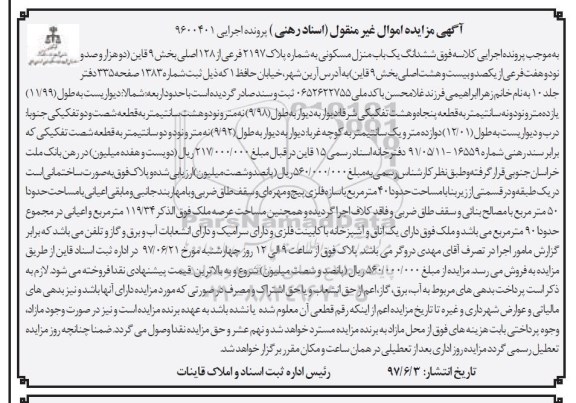 آگهی مزایده اموال غیر منقول (اسناد رهنی) پرونده اجرایی ۹۶۰۰۴۰۱
به موجب پرونده اجرایی کلاسه فوق ششدانگ یک باب منزل مسکونی به شماره پلاک ۲۱۹۷ فرعی از ۱۲۸ اصلی بخش ۹ قاین (دو هزار و صد و
نود و هفت فرعی از یکصد و بیست و هشت اصلی بخش ۹ قاین) به آدرس آرین شهر، خیابان حافظ ۱ که ذیل ثبت شماره ۱۳۸۳ صفحه ۳۳۵ دفتر
جلد ۱۰ به نام خانم زهرا ابراهیمی فرزند غلامحسن با کد ملی ۰۶۵۲۶۲۲۷۵۵ ثبت و سند صادر گردیده است با حدود اربعه: شمالا: دیواریست به طول (۱۱/۹۹)
یازده متر و نود و نه سانتیمتر به قطعه پنجاه و هشت تفکیکی شرقا دیوار به دیوار به طول (۹/۹۸) نه متر و نود و هشت سانتیمتر به قطعه شصت و دو تفکیکی جنوبا:
درب و دیواریست به طول (۱۲/۰۱) دوازده متر و یک سانتیمتر به کوچه غربا دیوار به دیوار به طول (۹/۹۲) نه متر و نود و دو سانتیمتر به قطعه شصت تفکیکی که
برابر سند رهنی شماره ۱۶۵۵۹-۹۱/۰۵/۱۱ دفترخانه اسناد رسمی ۱۵ قاین در قبال مبلغ ۲۱۷/۰۰۰/۰۰۰ ریال (دویست و هفده میلیون) در رهن بانک ملت
خراسان جنوبی قرار گرفته و طبق نظر کارشناس رسمی به مبلغ ۵۶۰/۰۰۰/۰۰۰ ریال (پانصد و شصت میلیون) ارزیابی شده و پلاک فوق به صورت ساختمانی است
در یک طبقه و در قسمتی از زیربنا با مساحت حدودا ۴۰ متر مربع با سازه فلزی پیچ و مهره ای و سقف طاق ضربی و با مهاربند جانبی و مابقی اعیانی با مساحت حدودا
۵۰ متر مربع با مصالح بنائی و سقف طاق ضربی و فاقد کلاف اجرا گردیده و همچنین مساحت عرصه ملک فوق الذکر ۱۱۹/۳۴ متر مربع و اعیانی در مجموع
حدودا ۹۰ متر مربع می باشد و ملک فوق دارای یک اتاق و آشپزخانه با کابینت فلزی و دارای سرامیک و دارای انشعابات آب و برق و گاز و تلفن می باشد که برابر
گزارش مامور اجرا در تصرف آقای مهدی دروگر می باشد. پلاک فوق از ساعت ۹ الی ۱۲ روز چهارشنبه مورخ ۹۷/۰۶/۲۱ در اداره ثبت اسناد قاین از طریق
مزایده به فروش می رسد. مزایده از مبلغ ۵۶۰/۰۰۰/۰۰۰ ریال (پانصد و شصت میلیون) شروع و به بالاترین قیمت پیشنهادی نقدا فروخته می شود. لازم به
ذکر است پرداخت بدهی های مربوط به آب، برق، گاز، اعم از حق انشعاب و یا حق اشتراک و مصرف در صورتی که مورد مزایده دارای آنها باشد و نیز بدهی های
مالیاتی و عوارض شهرداری و غیره تا تاریخ مزایده اعم از اینکه رقم قطعی آن معلوم شده یا نشده باشد به عهده برنده مزایده است و نیز در صورت وجود مازاد،
وجوه پرداختی بابت هزینه های فوق از محل مازاد به برنده مزایده مسترد خواهد شد و نیم عشر و حق مزایده نقدا وصول می گردد. ضمنا چنانچه روز مزایده
تعطیل رسمی گردد مزایده روز اداری بعد از تعطیلی در همان ساعت و مکان مقرر برگزار خواهد شد.
تاریخ انتشار: ۹۷/۶/۳ رئیس اداره ثبت اسناد و املاک قاینات